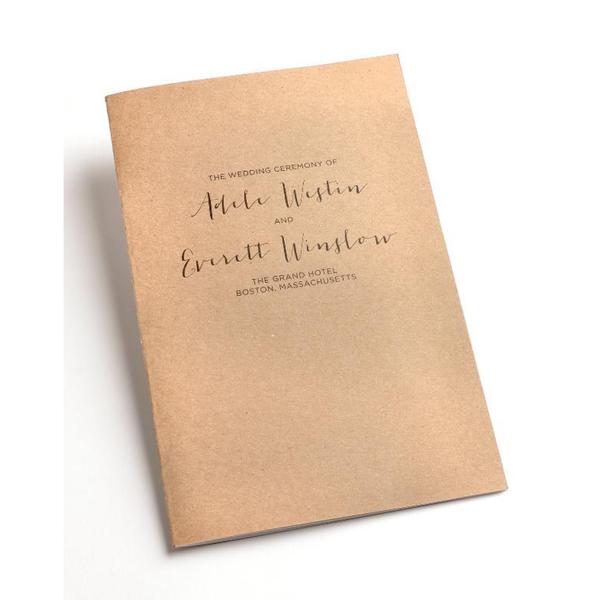 THE WEDDING CEREMONY OF
Adele Westin
AND
Everett Winslow
THE GRAND HOTEL
BOSTON, MASSACHUSETTS